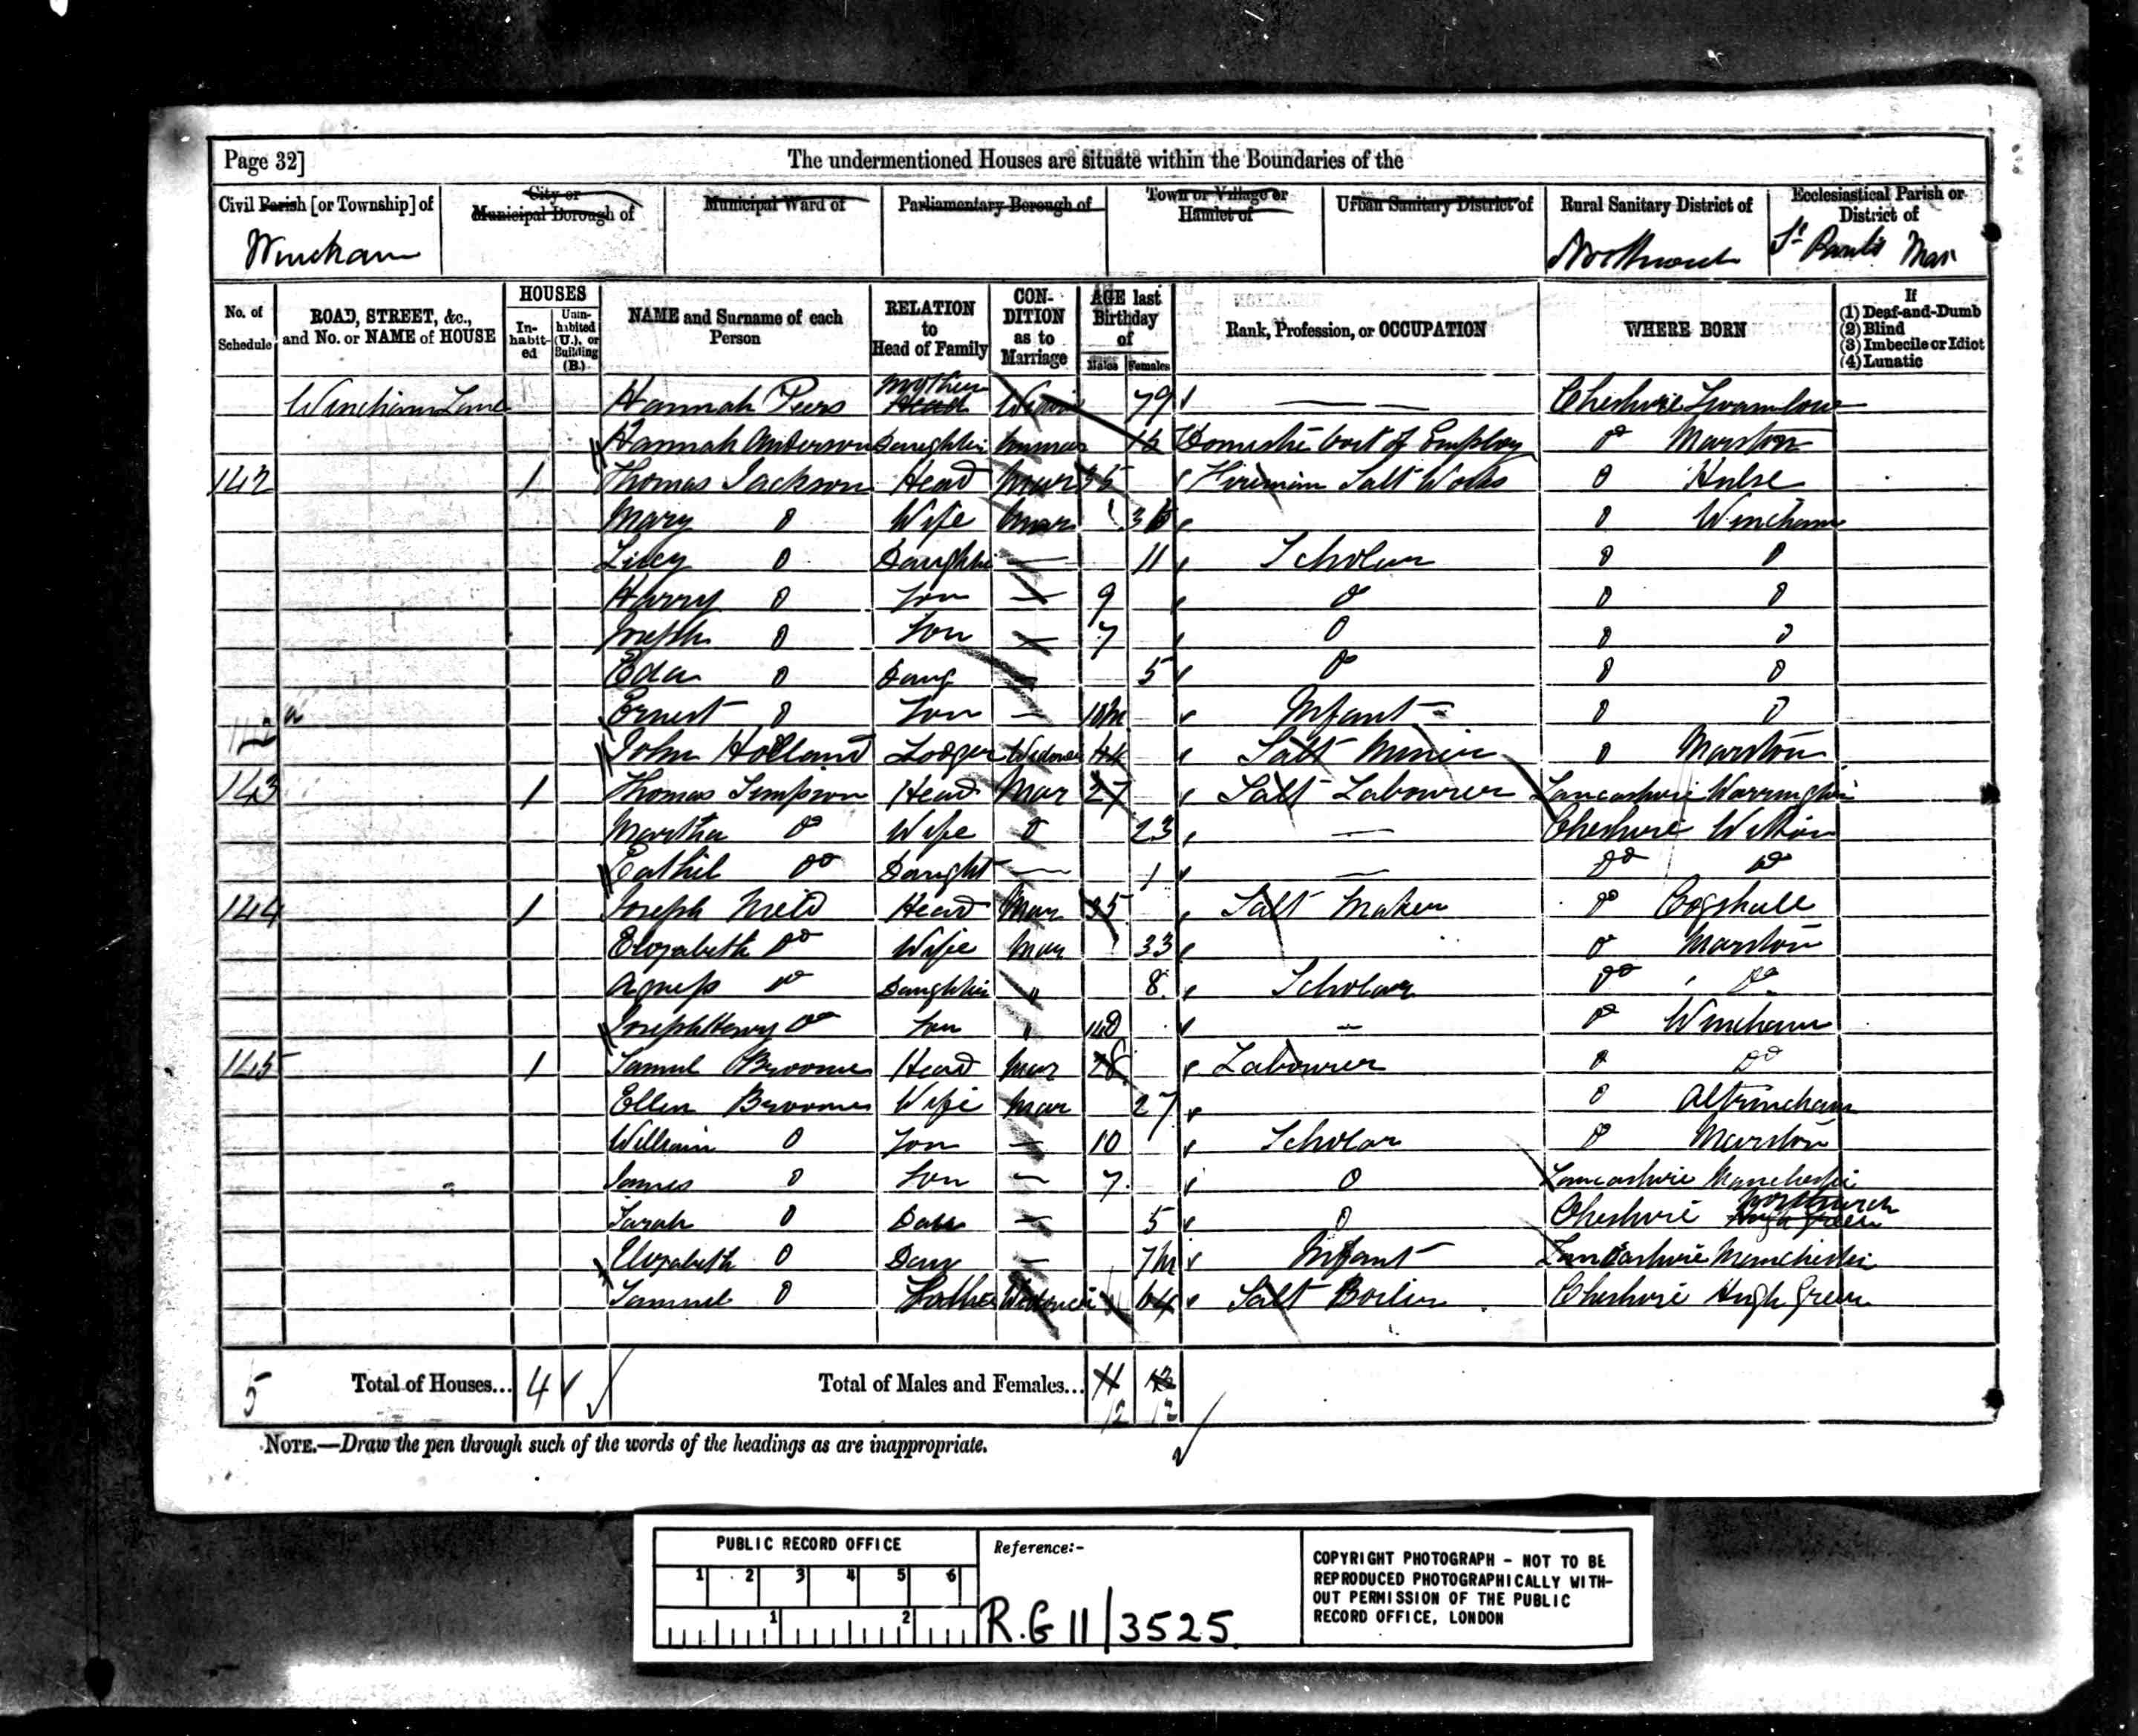 Page 32] The undermentioned Houses are situate within the Boundaries of the
Civil Parish [or Township] of City or Municipal Borough of Municipal Ward of Parliamentary Borough of Town or Village or Hamlet of Urban Sanitary District of Rural Sanitary District of Ecclesiastical Parish or District of
Wincham Northwich St Pauls Mar
No. of Schedule ROAD, STREET, &c., and No. or NAME of HOUSE HOUSES In-habit-ed Unin-habited (U.), or Building (B.) NAME and Surname of each Person RELATION to Head of Family CON-DITION as to Marriage AGE last Birthday of Males Females Rank, Profession, or OCCUPATION WHERE BORN If (1) Deaf-and-Dumb (2) Blind (3) Imbecile or Idiot (4) Lunatic
Wincham Lane Hannah Peers Mother Head Widow 79 — — Cheshire
Hannah Anderson Daughter Unmar 12 Domestic out of Employ Do Marston
142 1 Thomas Jackson Head Mar 35 Fireman Salt Works Do Hulse
Mary Do Wife Mar 36 Do Wincham
Lucy Do Daughter — 11 Scholar Do Do
Harry Do Son — 9 Do Do Do
Joseph Do Son — 7 Do Do Do
Eda Do Daug 5 Do Do Do
Ernest Do Son — 10m Infant Do Do
142a John Holland Lodger Widower 44 Salt Miner Do Marston
143 1 Thomas Simpson Head Mar 27 Salt Labourer Lancashire Warrington
Martha Do Wife Do 23 — Cheshire Witton
Eathil Do Daught — 1 — Do Do
144 1 Joseph Neild Head Mar 35 Salt Maker Do Cogshall
Elizabeth Do Wife Mar 33 Do Marston
Agness Do Daughter " 8 Scholar Do Do
Joseph Henry Do Son " — Do Wincham
145 1 Samul Broome Head Mar 28 Labourer Do Do
Ellen Broome Wife Mar 27 Do Altrincham
William Do Son — 10 Scholar Do Marston
James Do Son — 7 Do Lancashire Manchester
Sarah Do Dau — 5 Do Cheshire
Elizabeth Do Dau — 7m Infant Lancashire Manchester
Samuel Do Father Widower 64 Salt Boiler Cheshire High Green
5 Total of Houses... 4 Total of Males and Females... 11 13
12 12
NOTE.—Draw the pen through such of the words of the headings as are inappropriate.
PUBLIC RECORD OFFICE
1 2 3 4 5 6
1 2
Reference:-
R.G 11/3525
COPYRIGHT PHOTOGRAPH - NOT TO BE
REPRODUCED PHOTOGRAPHICALLY WITH-
OUT PERMISSION OF THE PUBLIC
RECORD OFFICE, LONDON